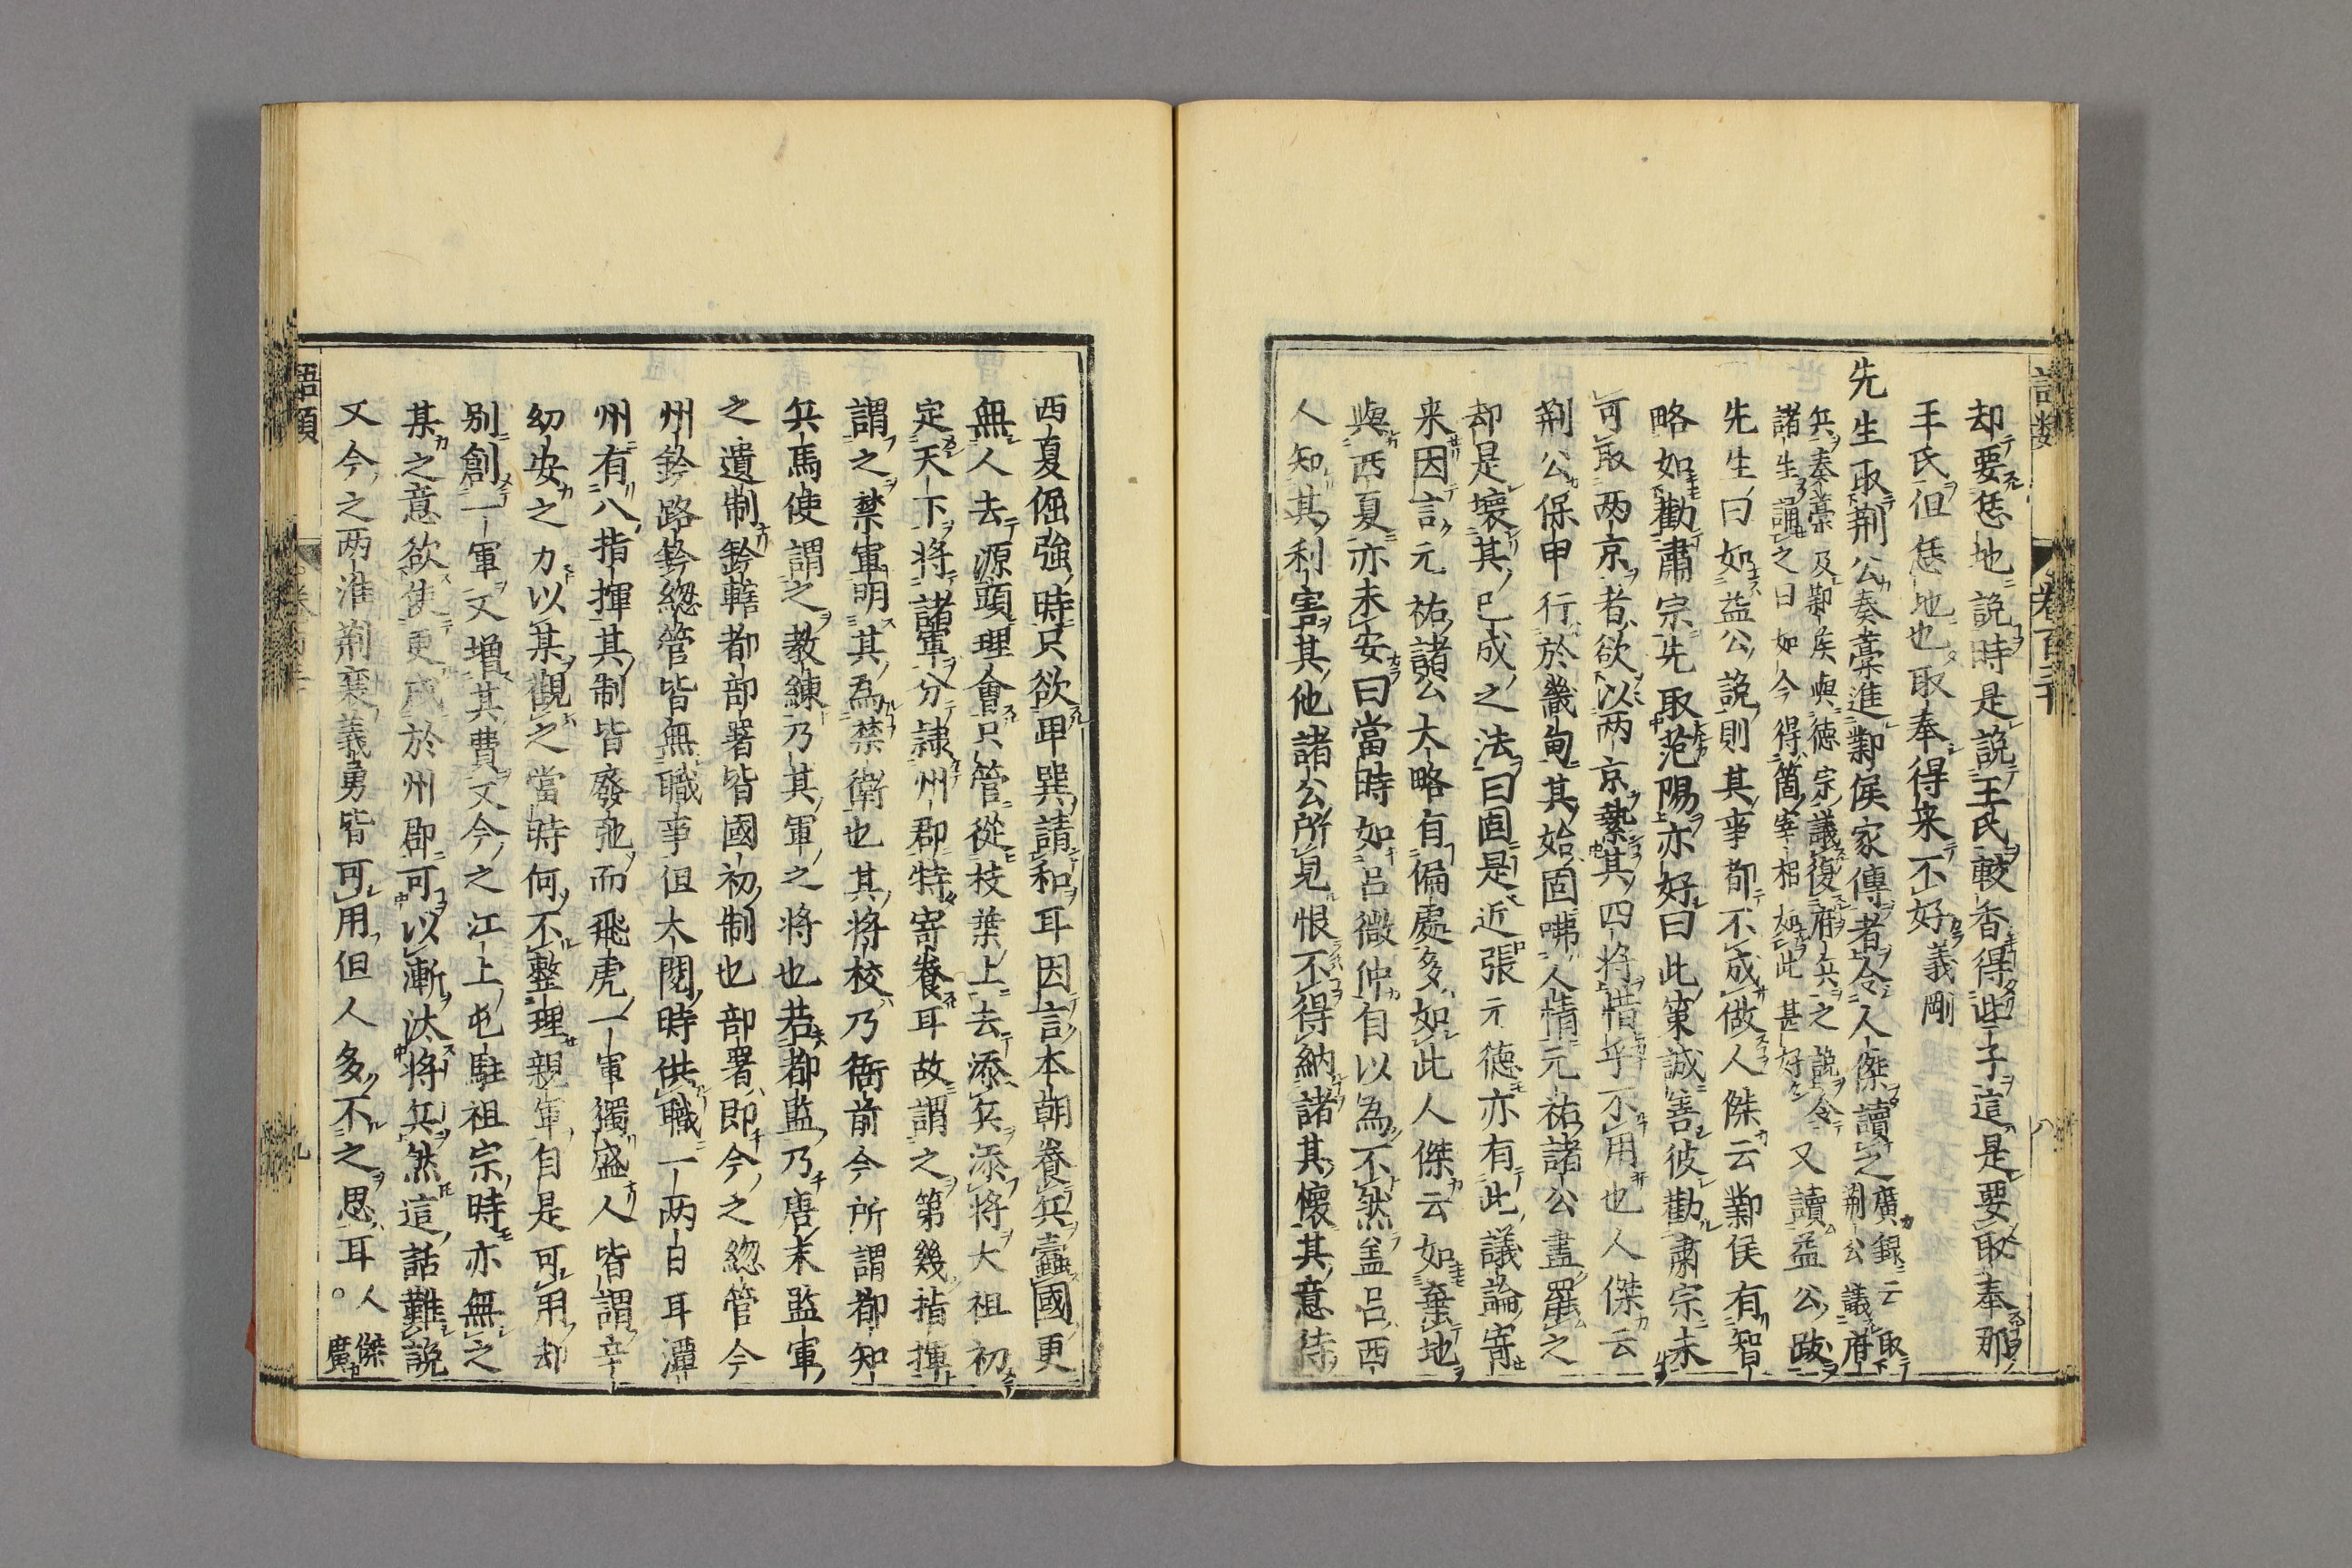 語類 卷百三十 八
却要恁地說時是說王氏較香得些子這是要取奉那
王氏但恁地也取奉得来不好義剛
先生取荆公奏藁進鄴侯家傳者令人傑讀之廣錄云取荆公議府
兵奏藁及鄴侯與德宗議復府兵之說令
諸生誦之曰如今得箇宰相如此甚好又讀益公跋
先生曰如益公說則其事都不成做人傑云鄴侯有智
略如勸肅宗先取范陽亦好曰此策誠善彼勸肅宗未
可取两京者欲以两京縶其四将惜乎不用也人傑云
荆公保甲行於畿甸其始固咈人情元祐諸公盡罷之
却是壞其已成之法曰固是近張元德亦有此議論寄
来因言元祐諸公大略有偏處多如此人傑云如棄地
與西夏亦未安曰當時如吕微仲自以為不然盖吕西
人知其利害其他諸公所見恨不得納諸其懷其意待
西夏倔強時只欲卑巽請和耳因言本朝養兵蠹國更
無人去源頭理會只管從枝葉上去添兵添將大祖初
定天下将諸軍分隷州郡特寄養耳故謂之第幾指揮
謂之禁軍明其為禁衛也其将校乃衙前今所謂都知
兵馬使謂之教練乃其軍之将也若都監乃唐末監軍
之遺制鈐轄都部署皆國初制也部署即今之緫管今
州鈐路鈐緫管皆無職事但大閱時供職一两日耳潭
州有八指揮其制皆廢弛而飛虎一軍獨盛人皆謂辛
幼安之力以某觀之當時何不整理親軍自是可用却
别創一軍又增其費又今之江上屯駐祖宗時亦無之
某之意欲使更戍於州郡可以漸汰将兵然這話難說
又今之两淮荆襄義勇皆可用但人多不之思耳。人傑廣
語類 九